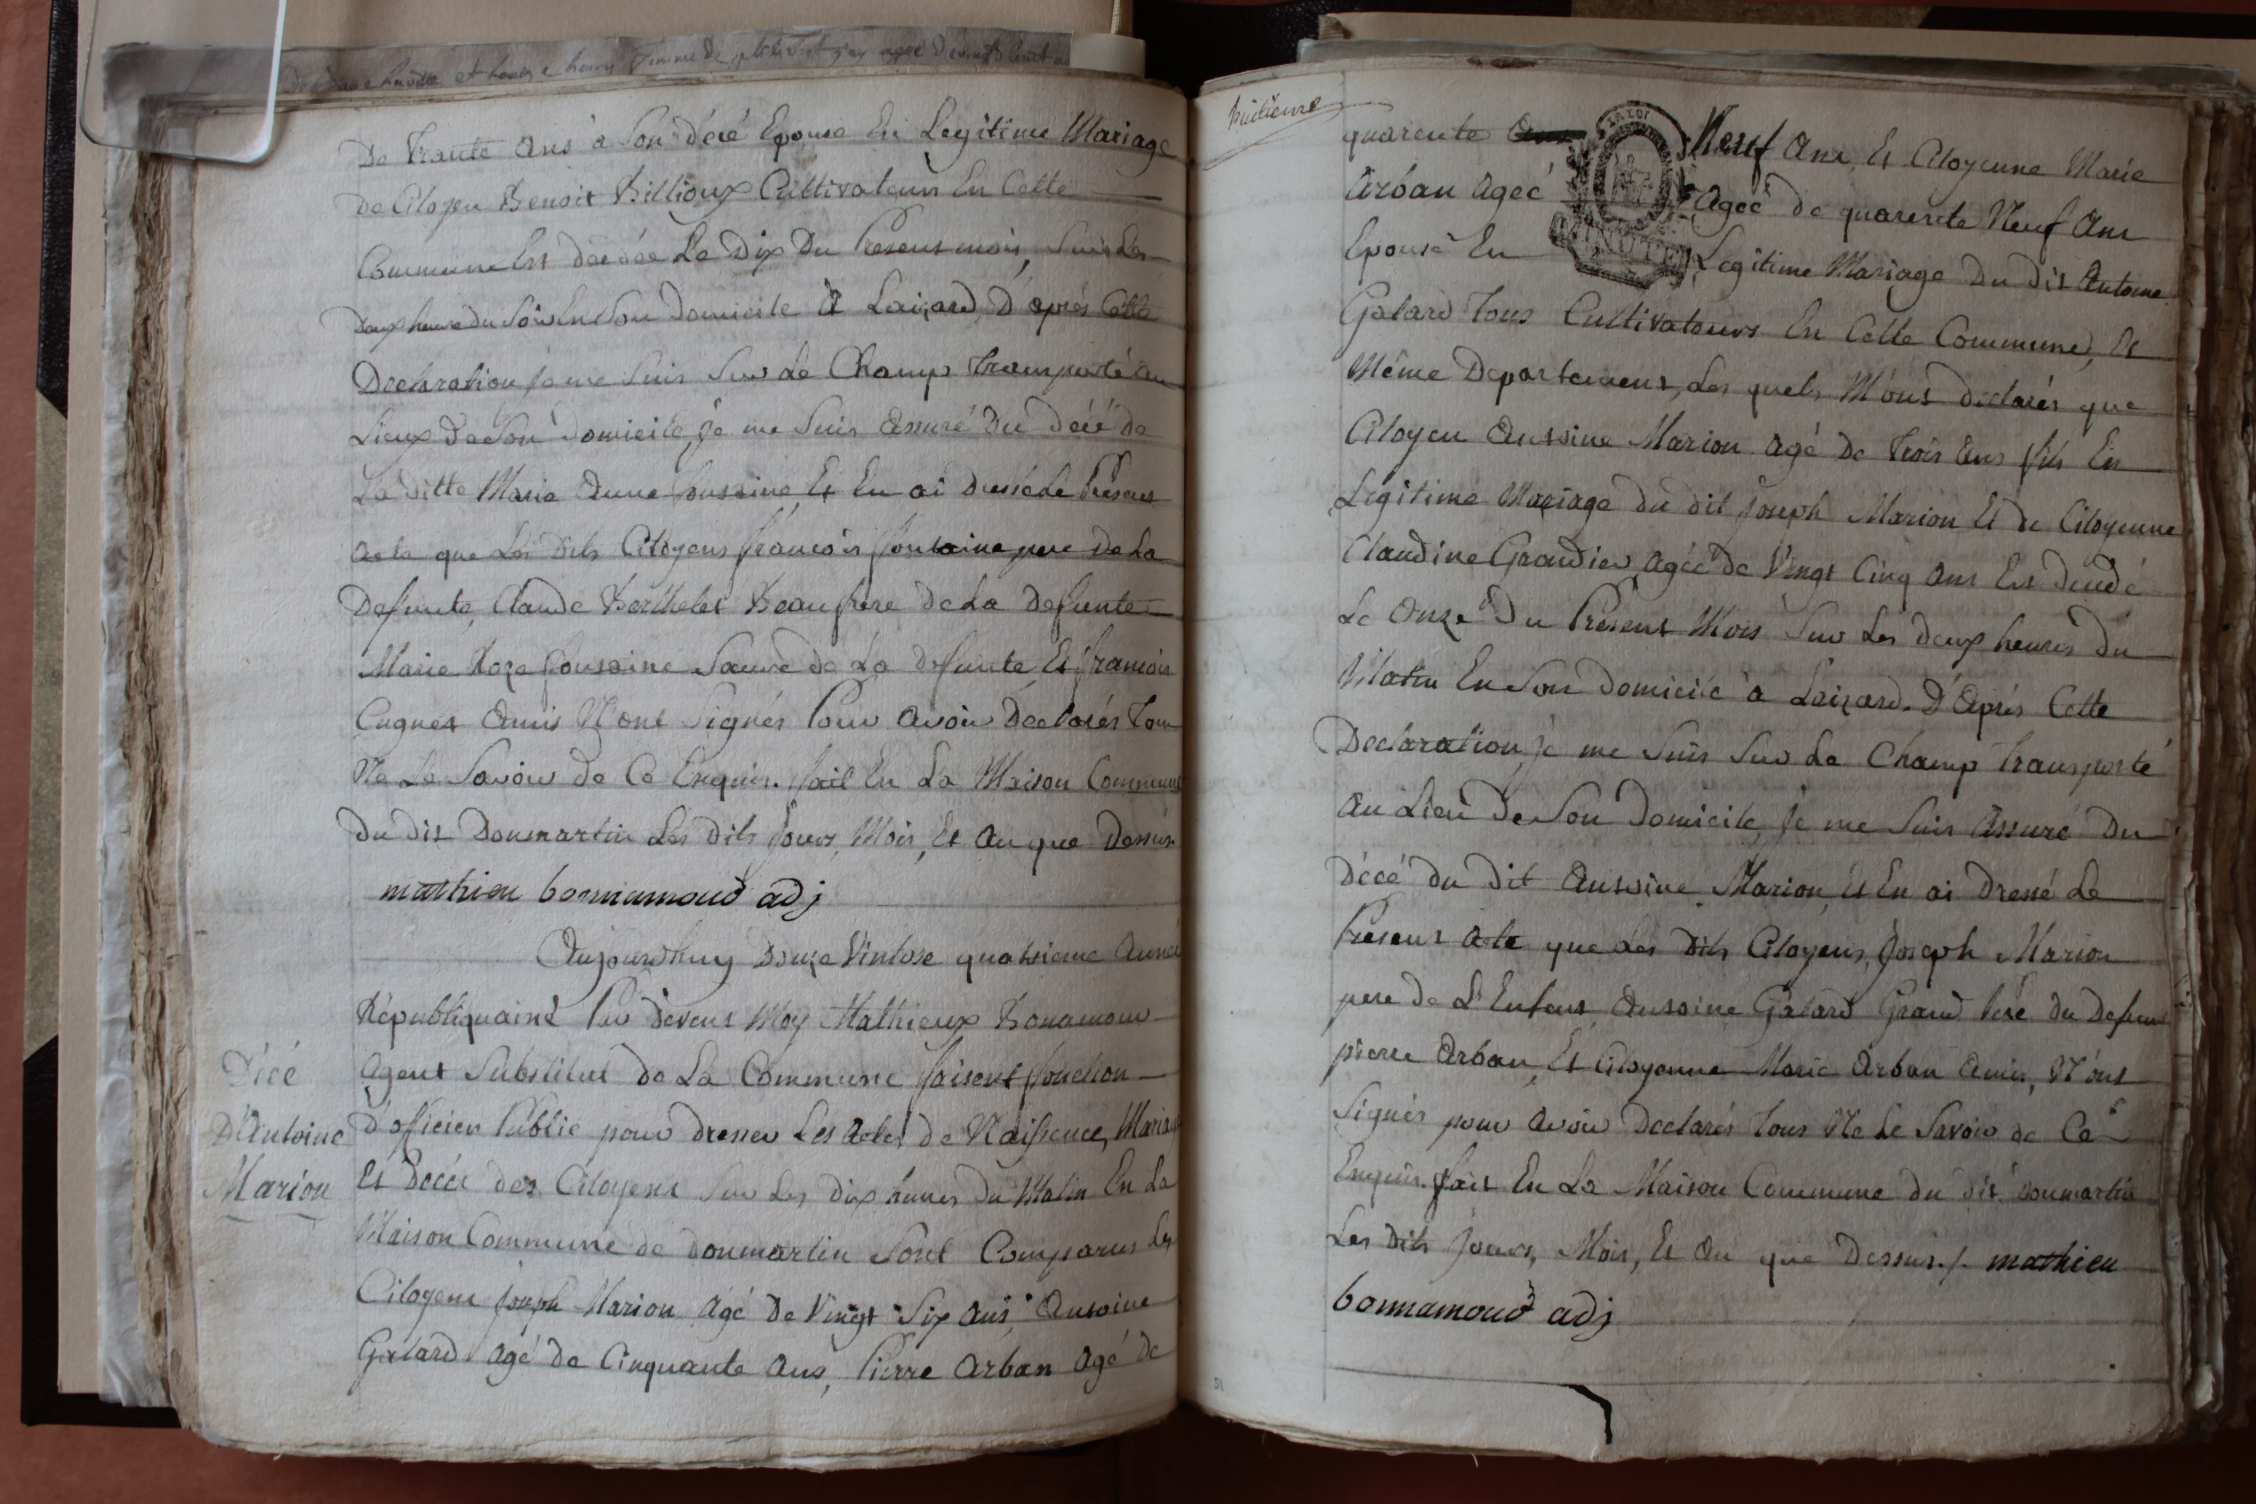 De Trante ans à Son décé Epouse En Legitime Mariage
De Citoyen Benoit Billioux Cultivateur En Cette
Commune Est décédée Le Dix Du Present mois, Sur Les
Deux heure du Soir En Son Domicile à Laizard, D'après Cette
Declaration, je me Suis Sur Le Champ Transporté au
Lieux De Son Domicile, je me Suis assuré du décé de
La ditte Marie Anne fontaine, Et En ai Dressé Le Présent
acte que Les Dits Citoyens françois fontaine pere De La
Defunte, Claude Berthelet Beaufrere de La Defunte
Marie Roze fontaine Saure de La Defunte, Et françois
Cugnet Amis N'ont Signés Pour avoir Declarés Tous
Ne Le Savoir de Ce Enquis. fait En La Maison Commune
du dit Donmartin Les dits Jours, Mois, Et An que Dessus.
mathieu bonnamoud adj
Aujourdhuy Douze Vintose quatrieme année
Républiquaine Par Devent Moy Mathieux Bonamour
Agent Substitut de La Commune faisent fonction
Décé
D'Antoine
Marion
D'officier Public pour dresser Les actes de Naissence, Mariage
Et Décée des Citoyens Sur Les dix heures du Matin En La
Maison Commune de Donmartin Sont Comparus Les
Citoyens joseph Marion Agé De Vingt Six Ans, Antoine
Galard agé de Cinquante Ans, Pierre Arban Agé de
huitieme
quarente Neuf Ans, Et Citoyenne Marie
Arban Ageé Ageé de quarente Neuf Ans
Epouse En Legitime Mariage Du Dit Antoine
Galard Tous Cultivateurs En Cette Commune, Et
Même Departement, Les quels M'ont declarés que
Citoyen Antoine Marion agé De Trois Ans fils En
Legitime Mariage du dit joseph Marion Et de Citoyenne
Claudine Grandier, Agée de Vingt Cinq Ans Est décédé
Le Onze Du Présent Mois Sur Les Deux heures Du
Matin En Son Domicile a Laizard. D'Après Cette
Declaration, je me Suis Sur Le Champ Transporté
Au Lieu De Son Domicile, je me Suis Assuré Du
Décé du Dit Antoine Marion, Et En ai Dressé Le
Present acte que Les Dits Citoyens, Joseph Marion
pere de L'Enfent, Antoine Galard Grand Pere Du Defunt
pierre Arban, Et Citoyenne Marie Arban Amis, N'ont
Signés pour avoir Declarés Tous Ne Le Savoir de Ce
Enquis. fait En La Maison Commune du dit Donmartin
Les Dits Jours, Mois, Et An que Dessus./. mathieu
bonnamoud adj